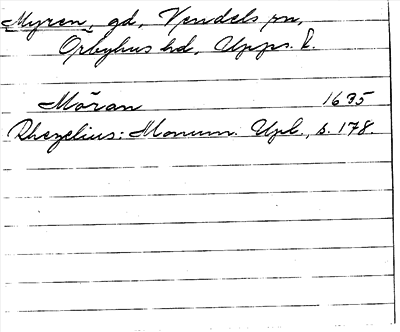 Myren, gd, Vendels sn,
Örbyhus hd, Upps. l.
Möran 1635
Rhezelius: Monum. Upl., s. 178.